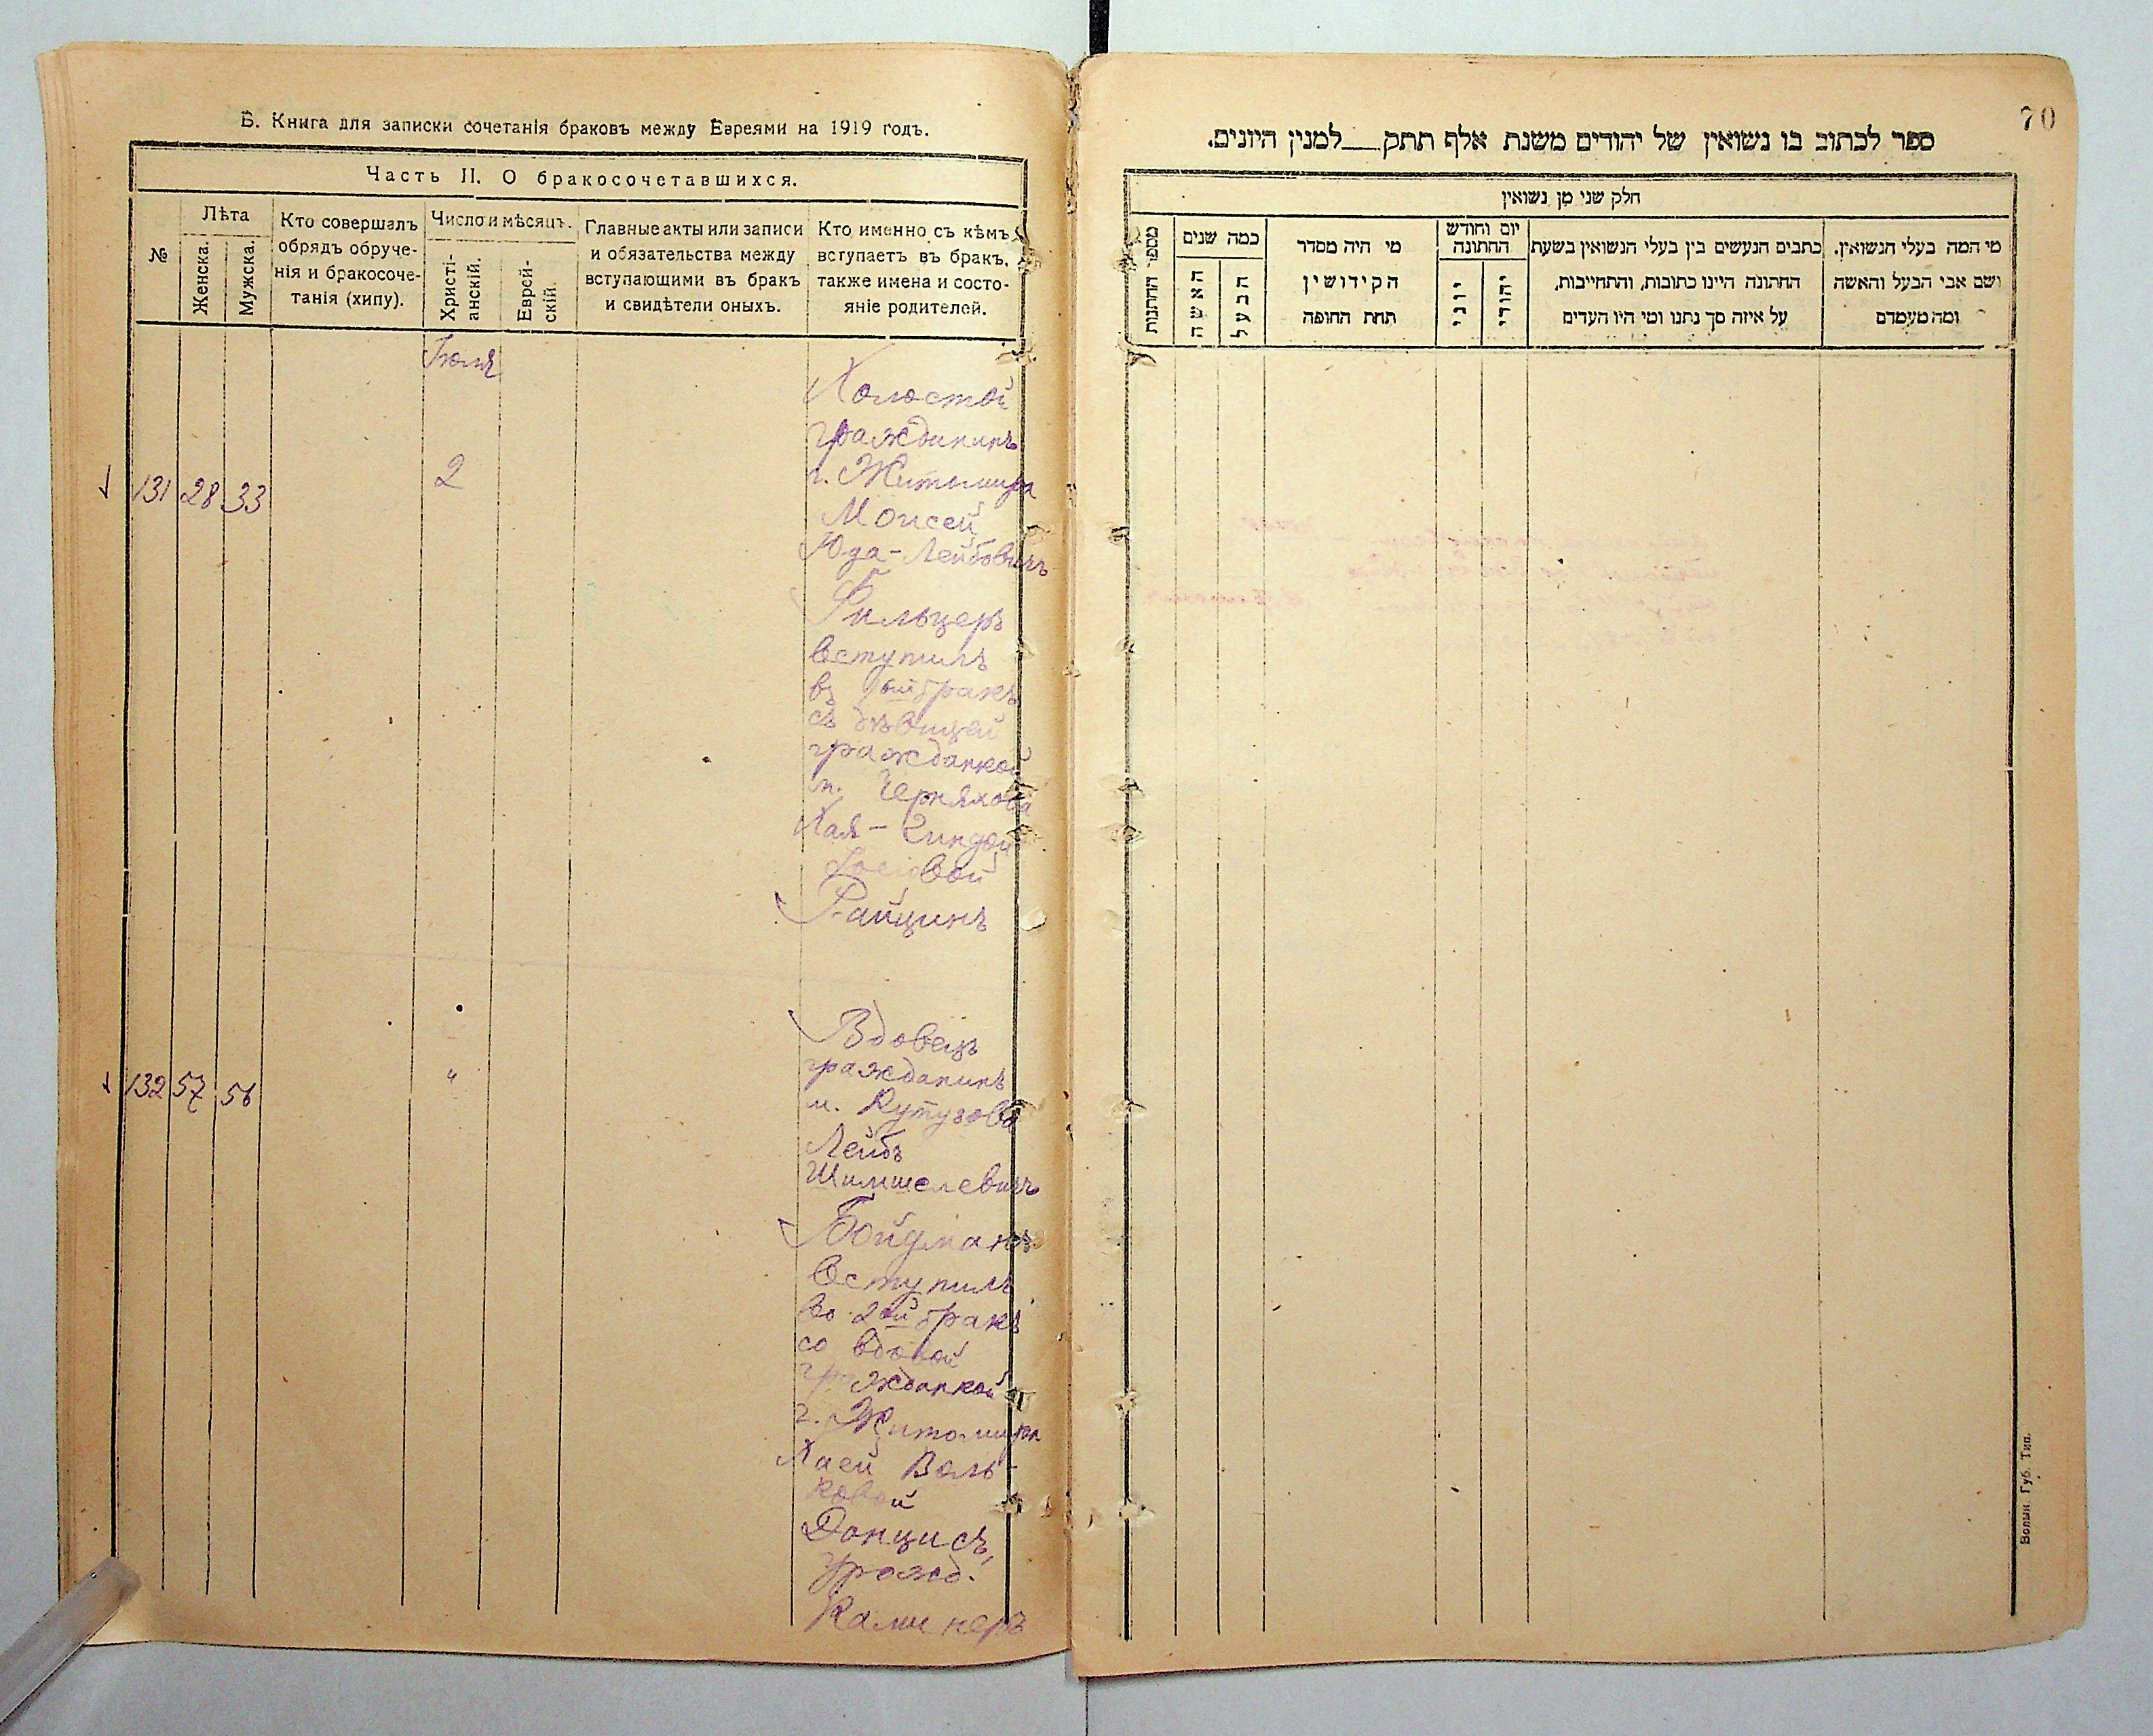 Б. Книга для записки сочетанія браковъ между Евреями на 1919 годъ.
Часть II. О бракосочетавшихся.
№
Лѣта
Женска.
Мужска.
Кто совершалъ
обрядъ обруче-
нія и бракосоче-
танія (хипу).
Число и мѣсяцъ.
Христі-
анскій.
Еврей-
скій.
Главные акты или записи
и обязательства между
вступающими въ бракъ
и свидѣтели оныхъ.
Кто именно съ кѣмъ
вступаетъ въ бракъ,
также имена и состо-
яніе родителей.
Іюля
131 28 33
2
Холостой
гражданинъ
г. Житомира
Моисей
Юда-Лейбовичъ
Фильцеръ
вступилъ
въ 1ый бракъ
съ дѣвицей
гражданкой
м. Черняхова
Хая-Киндой
вой
Райцинъ
132 57 56
"
Вдовецъ
гражданинъ
м. Кутузова
Лейбъ
Шимшелевичъ
Бойдманъ
вступилъ
во 2ой бракъ
со вдовой
гражданкой
г. Житомира
Хаей Воль-
ковой
Донцисъ,
урожд.
Каминеръ
70
ספר לכתוב בו נשואין של יהודים משנת אלף תתק__למנין היונים.
חלק שני מן נשואין
מספר החתנות
כמה שנים
האשה
הבעל
מי היה מסדר
הקידושין
תחת החופה
יום וחודש
החתונה
יוני
יהודי
כתבים הנעשים בין בעלי הנשואין בשעת
החתונה היינו כתובות, והתחייבות,
על איזה סך נתנו ומי היו העדים
מי המה בעלי הנשואין.
ושם אבי הבעל והאשה
ומה מעמדם
Волын. Губ. Тип.